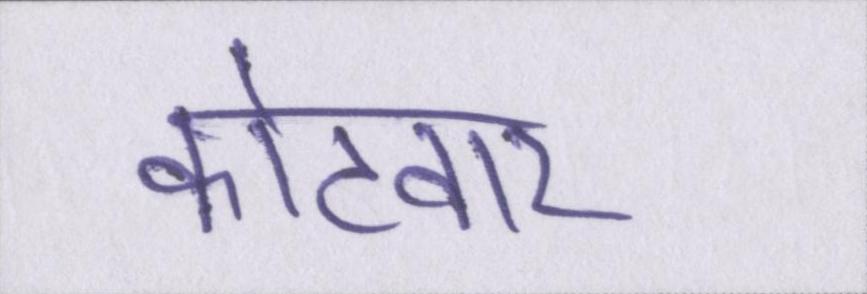 कोटवार